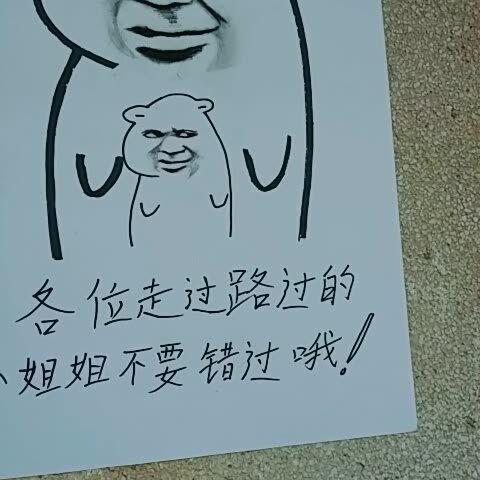 各位走过路过的
小姐姐不要错过哦!